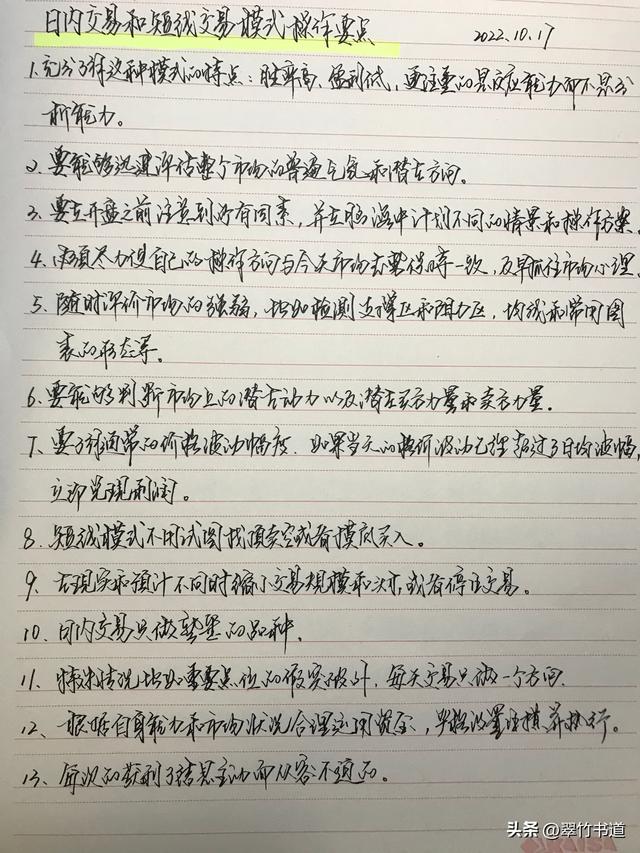 日内交易和短线交易模式操作要点
2022.10.17
1.充分了解这种模式的特点：胜率高、盈利低，更注重的是反应能力而不是分
析能力。
2、要能够迅速评估整个市场的普遍气氛和潜在方向。
3、要在开盘之前注意到所有因素，并在脑海中计划不同的情景和操作方案。
4、必须尽力使自己的操作方向与今天市场去势保持一致，及早抓住市场心理。
5、随时评价市场的强弱，比如检测支撑区和阻力区，均线和常用图
表的形态等。
6、要能够判断市场上的潜在动力以及潜在买方力量和卖方力量。
7、要了解通常的价格波动幅度．如果当天的格价波动已经超过了日均波幅，
立即兑现利润。
8、短线模式不用试图找顶卖空或者摸底买入。
9、在现实和预计不同时缩小交易规模和次数，或者停止交易。
10、日内交易只做熟悉的品种．
11、特殊情况比如重要点位的假突破外，每天交易只做一个方向．
12、根据自身能力和市场状况合理运用资金，严格设置止损并执行。
13、每次的获利了结是主动而从容不迫的。
头条 @翠竹书道